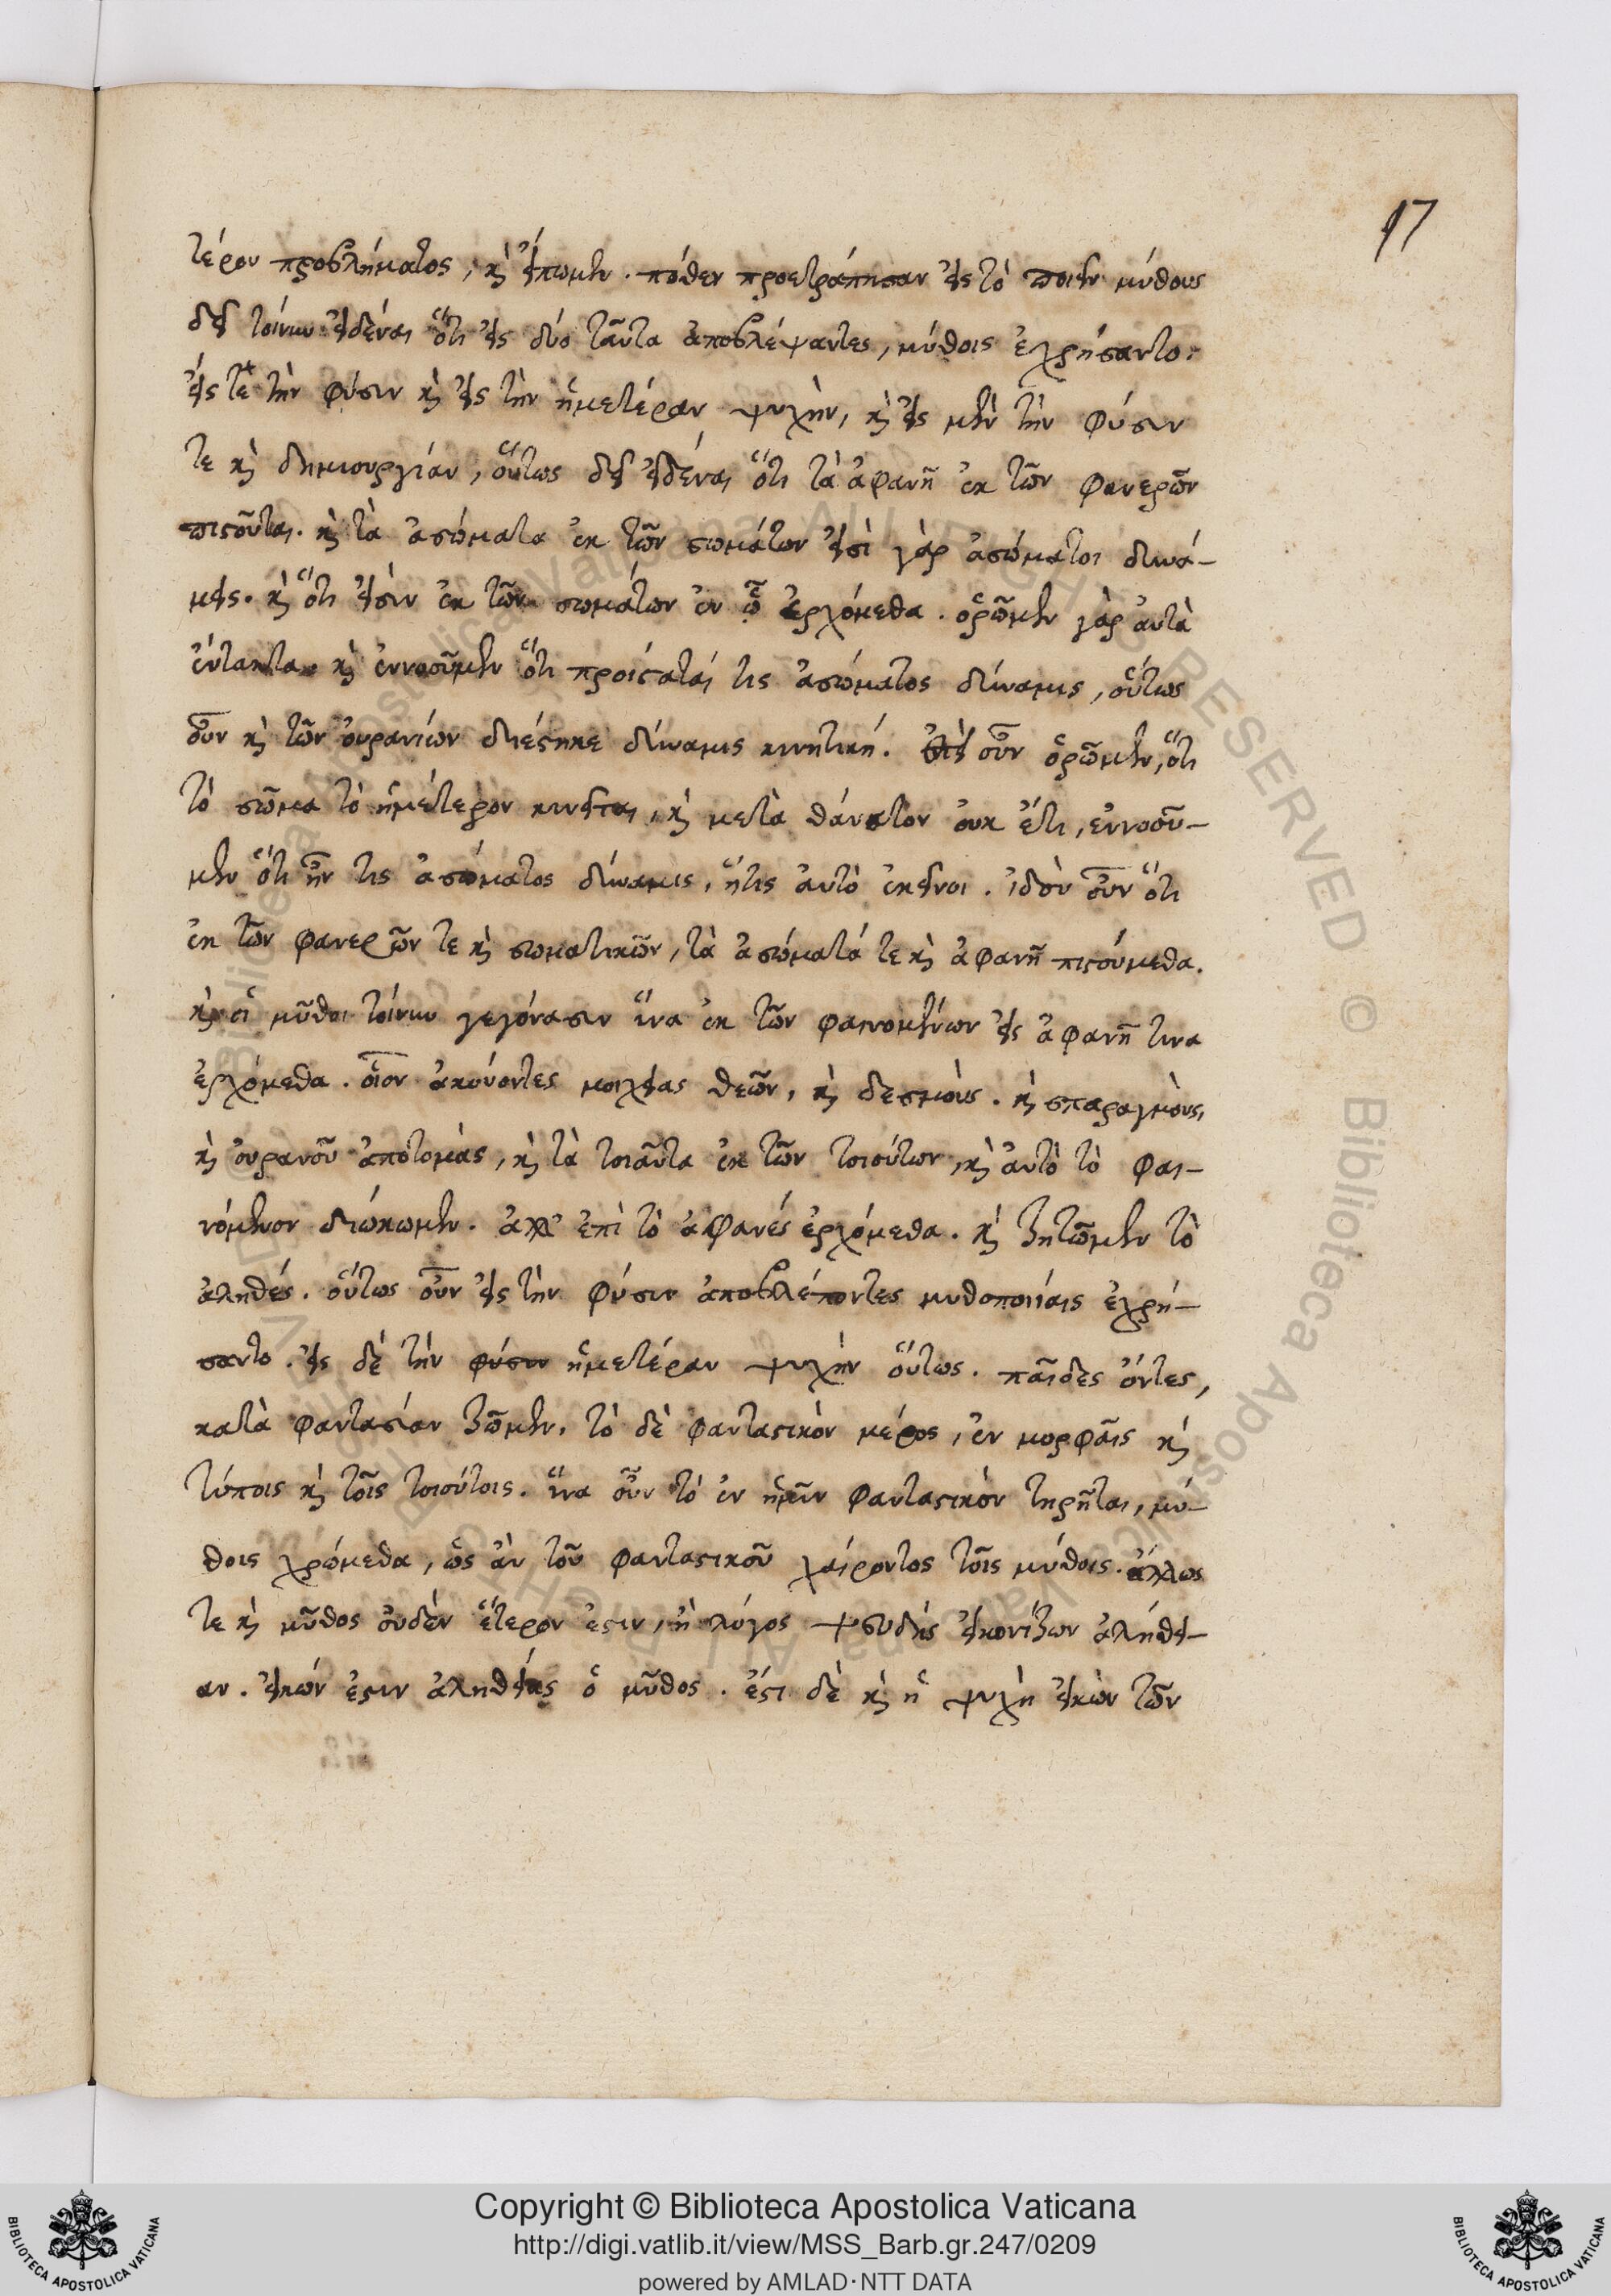 17
τέρου προβλήματος, κỳ εἴπωμεν. πόθεν προετράπησαν εἰς τὸ ποιεῖν μύθους
δεῖ τοίνυν εἰδέναι ὅτι εἰς δύο ταῦτα ἀποβλέψαντες, μύθοις ἐχρήσαντο·
εἴς τε τὴν φύσιν κỳ εἰς τὴν ἡμετέραν ψυχὴν, κỳ εἰς μὲν τὴν φύσιν
τε κỳ δημιουργίαν, οὕτως δεῖ εἰδέναι ὅτι τὰ ἀφανῆ ἐκ τῶν φανερῶν
πιστοῦται. κỳ τὰ ἀσώματα ἐκ τῶν σωμάτων εἰσὶ γὰρ ἀσώματοι δυνά–
μεις. κỳ ὅτι εἰσὶν ἐκ τῶν σωμάτων ἐν ᾧ ἐρχόμεθα. ὁρῶμεν γὰρ αὐτὰ
εὔτακτα κỳ ἐννοοῦμεν ὅτι προίσταταί τις ἀσώματος δύναμις, οὕτως
οὖν κỳ τῶν οὐρανίων διέστηκε δύναμις κινητική. ἐπεὶ οὖν ὁρῶμεν, ὅτι
τὸ σῶμα τὸ ἡμέτερον κινεῖται, κỳ μετὰ θάνατον οὐκ ἔτι, ἐννοοῦ–
μεν ὅτι ἦν τις ἀσώματος δύναμις, ἥτις αὐτὸ ἐκείνοι. ἰδοὺ οὖν ὅτι
ἐκ τῶν φανερῶν τε κỳ σωματικῶν, τὰ ἀσώματά τε κỳ ἀφανῆ πιστούμεθα.
κỳ οἱ μῦθοι τοίνυν γεγόνασιν ἵνα ἐκ τῶν φαινομένων εἰς ἀφανῆ τινα
ἐρχόμεθα. οἷον ἀκούοντες μοιχείας θεῶν, κỳ δεσμοὺς. κỳ σπαραγμοὺς,
κỳ οὐρανοῦ ἀποτομὰς, κỳ τὰ τοιαῦτα ἐκ τῶν τοιούτων, κỳ αὐτὸ τὸ φαι–
νόμενον διώκωμεν. ἀλλ' ἐπὶ τὸ ἀφανές ἐρχόμεθα. κỳ ζητῶμεν τὸ
ἀληθές. οὕτως οὖν εἰς τὴν φύσιν ἀποβλέποντες μυθοποιίαις ἐχρή–
σαντο. εἰς δὲ τὴν φύσιν ἡμετέραν ψυχὴν οὕτως. παῖδες ὄντες,
κατὰ φαντασίαν ζῶμεν, τὸ δὲ φανταστικὸν μέρος, ἐν μορφαῖς κỳ
τύποις κỳ τοῖς τοιούτοις. ἵνα οὖν τὸ ἐν ἡμῖν φανταστικὸν τηρῆται, μύ–
θοις χρώμεθα, ὡς ἂν τοῦ φανταστικοῦ χαίροντος τοῖς μύθοις. ἄλλως
τε κỳ μῦθος οὐδὲν ἕτερον ἐστιν, ἢ λόγος ψευδὴς εἰκονίζων ἀλήθει–
αν. εἰκών ἐστιν ἀληθείας ὁ μῦθος. ἐστι δὲ κỳ ἡ ψυχὴ εἰκὼν τῶν
Copyright © Biblioteca Apostolica Vaticana
http://digi.vatlib.it/view/MSS_Barb.gr.247/0209
powered by AMLAD·NTT DATA